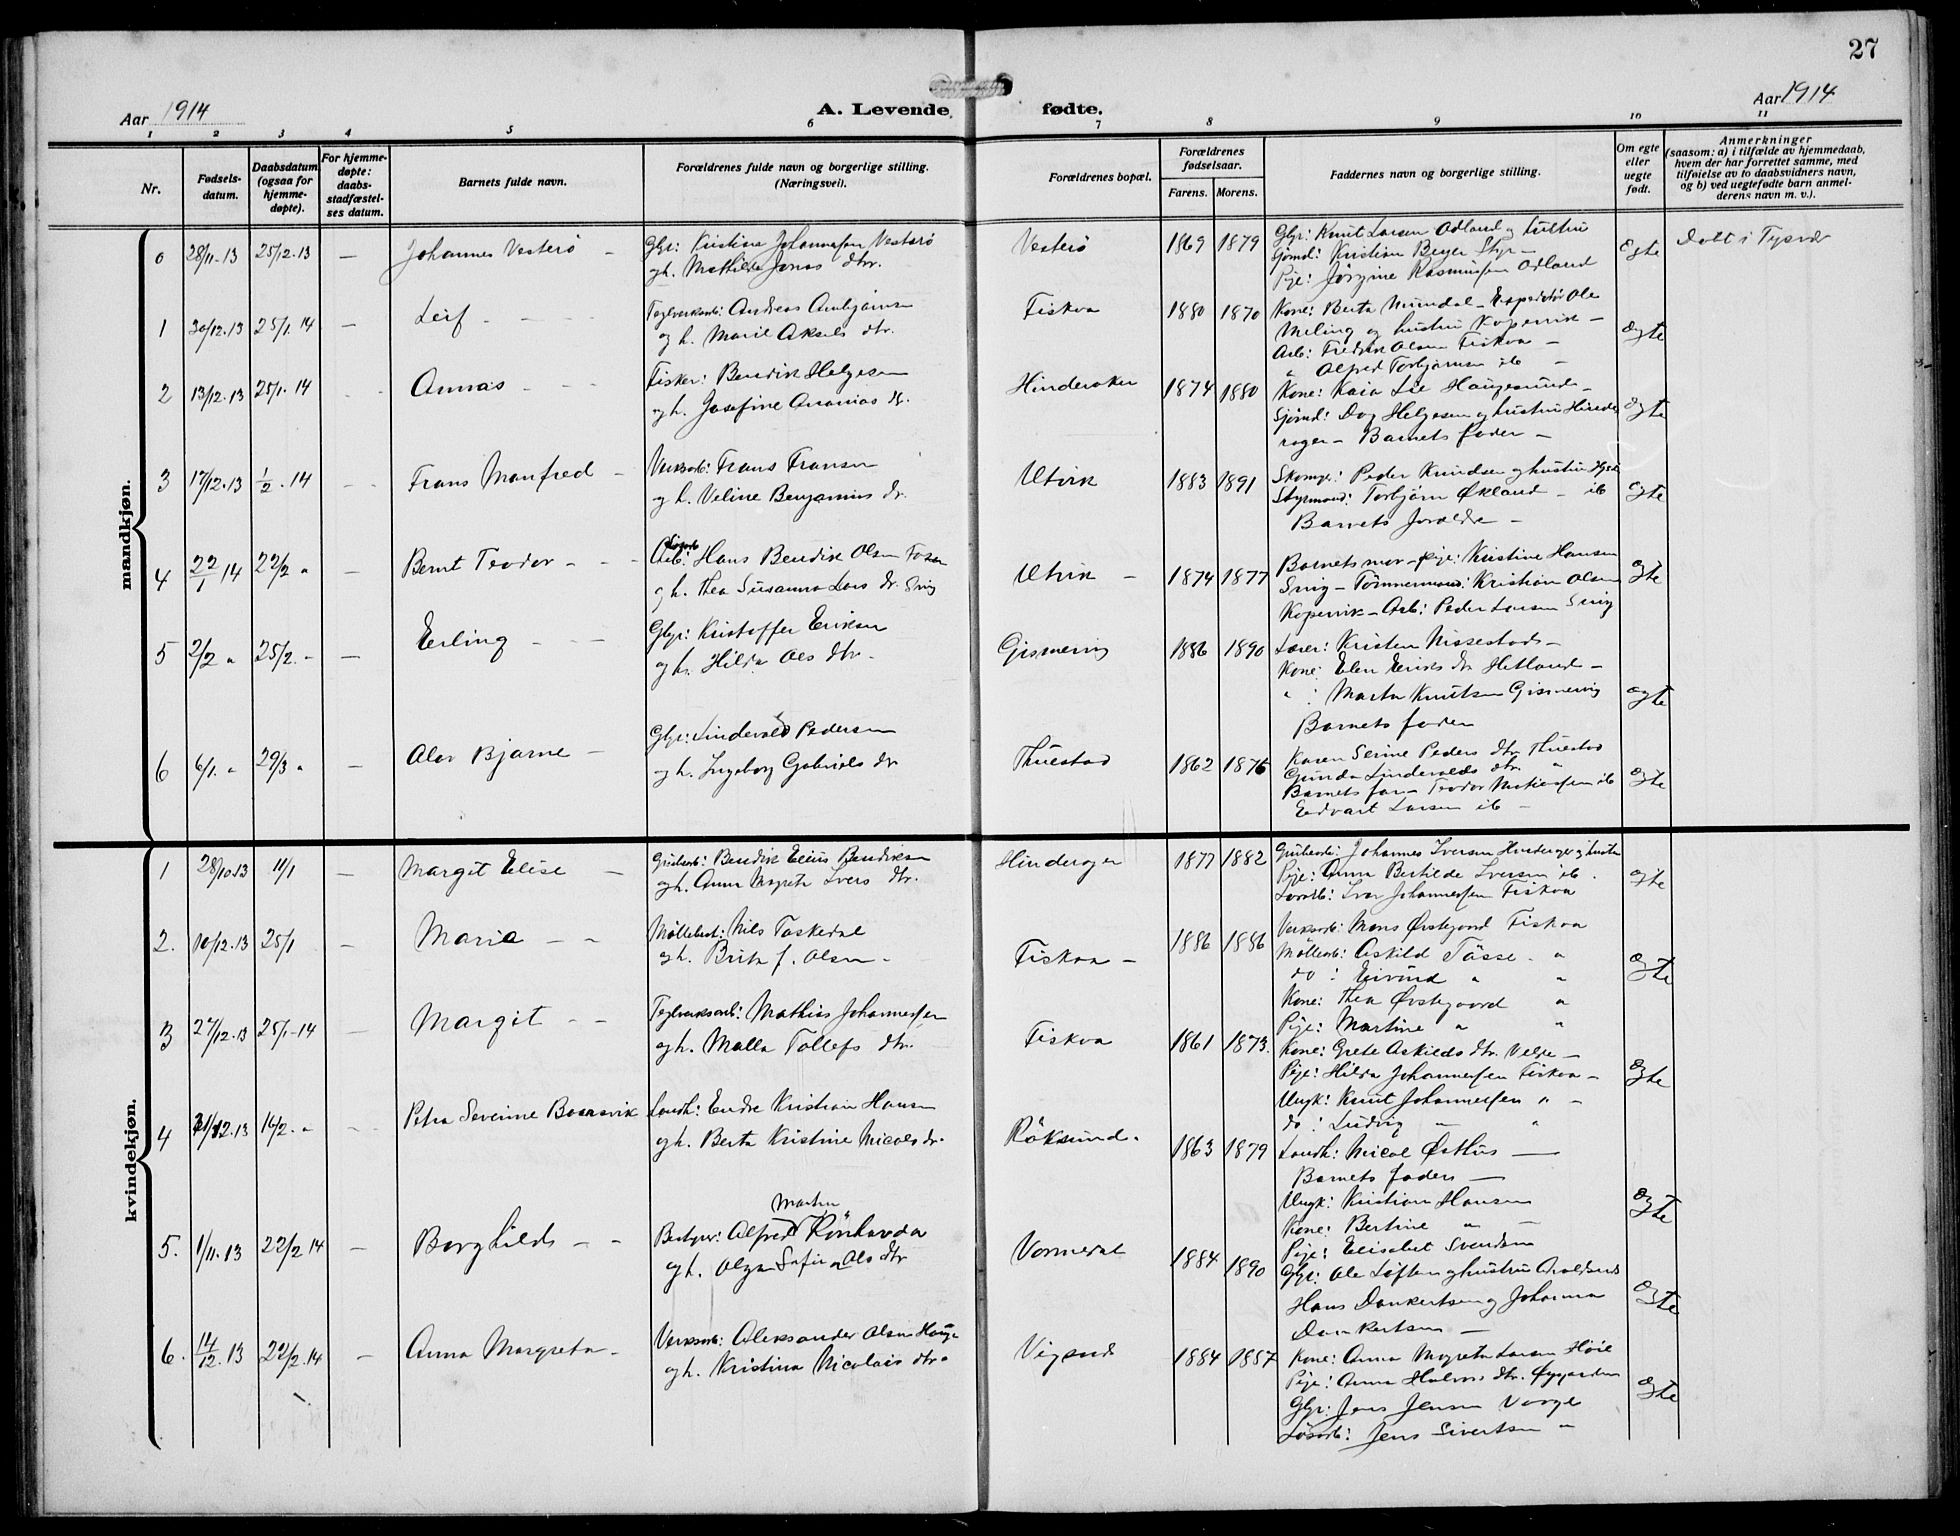 27
Aar 1914
A. Levende fødte.
Aar 1914
1 2 3 4 5 6 7 8 9 10 11
Nr.
Fødsels-
datum.
Daabsdatum
(ogsaa for
hjemme-
døpte).
For hjemme-
døpte:
daabs-
stadfæstel-
ses datum.
Barnets fulde navn.
Forældrenes fulde navn og borgerlige stilling.
(Næringsvei).
Forældrenes bopæl.
Forældrenes
fødselsaar.
Farens. Morens.
Faddernes navn og borgerlige stilling.
Om egte
eller
uegte
født.
Anmerkninger
(saasom: a) i tilfælde av hjemmedaab,
hvem der har forrettet samme, med
tilføielse av to daabsvidners navn,
og b) ved uegtefødte barn anmel-
derens navn m. v.).
mandkjøn.
0 28/11.13 25/12.13 — Johannes Vesterö —
Gbr: Kristine Johannessen Vesterö
og h. Mathilde Jonas dtr.
Vesterö 1869 1879
Gbr: Knut Larsen Odland og hustru
Sjømd: Kristian Beyer Styr —
Pige: Jørgine Rasmussen Odland
Egte
Døbt i Tysvær
1 30/12.13 25/1.14 — Leif
Teglverksarb: Andreas
og h. Marie Aksels dtr.
Fiskaa 1880 1870
Kone: Berta Mundal — Expeditör Ole
Meling og hustru Kopervik —
Arb: Fredrik Olsen Fiskaa —
" Alfred Torbjørnsen ib —
ægte
2 13/12.13 25/1.14 Annas
Fisker: Bendik Helgesen
og h. Josefine Ananias d.
Hinderaker 1874 1880
Kone: Kaia Lie Haugesund —
Sjömd: Dag Helgesen og hustru Hinde
rager — Barnets fader —
ægte
3 17/12.13 1/2.14 Frans Manfred —
Verksarb: Frans Fransen
og h. Veline Benjamins dr.
Utvik 1883 1891
Skomgr: Peder Knudsen og hustru
Styrmand: Torbjörn Økland — ib
Barnets forældre —
ægte
4 22/1 14 22/2 " — Bernt Teodor —
Arb: Hans Bendik Olsen
og h. Thea Susanna Lars dr. Snig
Utvik — 1874 1877
Barnets mor — Pige: Kristine Hansen
Snig — Tømmermand: Kristian Olsen
Kopervik — Arb: Peder Larsen Snig
Egte
5 2/2 " 25/2. " — Erling
Gbr: Kristoffer Eriksen
og h. Hilda Ols dtr.
Gismervig 1886 1890
Lærer: Kristen Nissestad —
Kone: Elen Eriks dr Hetland —
" : Marta Knutsen Gismervig
Barnets fader
ægte
6 6/1. " 29/3 " — Alov Bjarne —
Gbr: Lindevald Pedersen
og h. Ingeborg Gabriels dr
Thuestad 1862 1875
Karen Serine Peders dtr. Thuestad
Gunda Lindevalds dtr. "
Barnets far — Teodor Mathiessen ib
Edvart Larsen ib —
Egte
kvindekjøn.
1 28/10.13 11/1 — Margit Elise —
Grubearb: Bendik Elius Bendiksen
og h. Anna Magreta Ivers dtr.
Hinderager 1877 1882
Grubearb: Johannes Iversen Hinderager og hustru
Pige: Anna Bertilde Iversen ib.
Ivar Johannessen Fiskaa
ægte
2. 10/12.13 25/1 — Marie —
Möllebest: Nils Taskedal
og h. Brita f. Olsen —
Fiskaa — 1886 1886
Verksarb: Mons Østegaard Fiskaa
Møllearb: Askild Tässe. "
do : Eivind " "
Kone: Thea Østegaard "
Pige: Martine " "
Egte
3 27/12.13 25/1-14 — Margit —
Teglverksarb: Mathias Johannessen
og h. Malla Tollefs dtr.
Fiskaa 1861 1873.
Kone: Grete Askilds dtr. Velde —
Pige: Hilda Johannessen Fiskaa —
Ungk: Knut Johannessen " —
do : Ludvig " "
Egte
4 31/12.13 14/2. " Petra Severine Baarsvik
Landh: Endre Kristian Hansen
og h. Berta Kristine Nicols dr.
Röksund. 1863 1879
Landh: Nicol Østhus —
Barnets fader —
Ungk: Kristian Hansen
Kone: Bertine " —
Pige: Elisabet Svendsen
Egte
5. 1/11.13 22/2 14 — Borghild —
Martin
Bestyrer: Alfred Rönhavda
og h. Olga Sofie Ols dtr
Vormedal 1884 1890
Gbr: Ole Loften og hustru
Hans Dankertsen og Johanna
Dankertsen —
Egte
6. 14/12.13 22/2.14 — Anna Margreta —
Verksarb: Aleksander Olsen Hauge
og h. Kristina Nicolais dtr.
Vigsnes 1884 1887
Kone: Anna Magreta Larsen Höie
Pige: Anna dtr. Øygarden
Gbr: Jens Jensen Vorge
Løsarb: Jens Sivertsen "
Egte